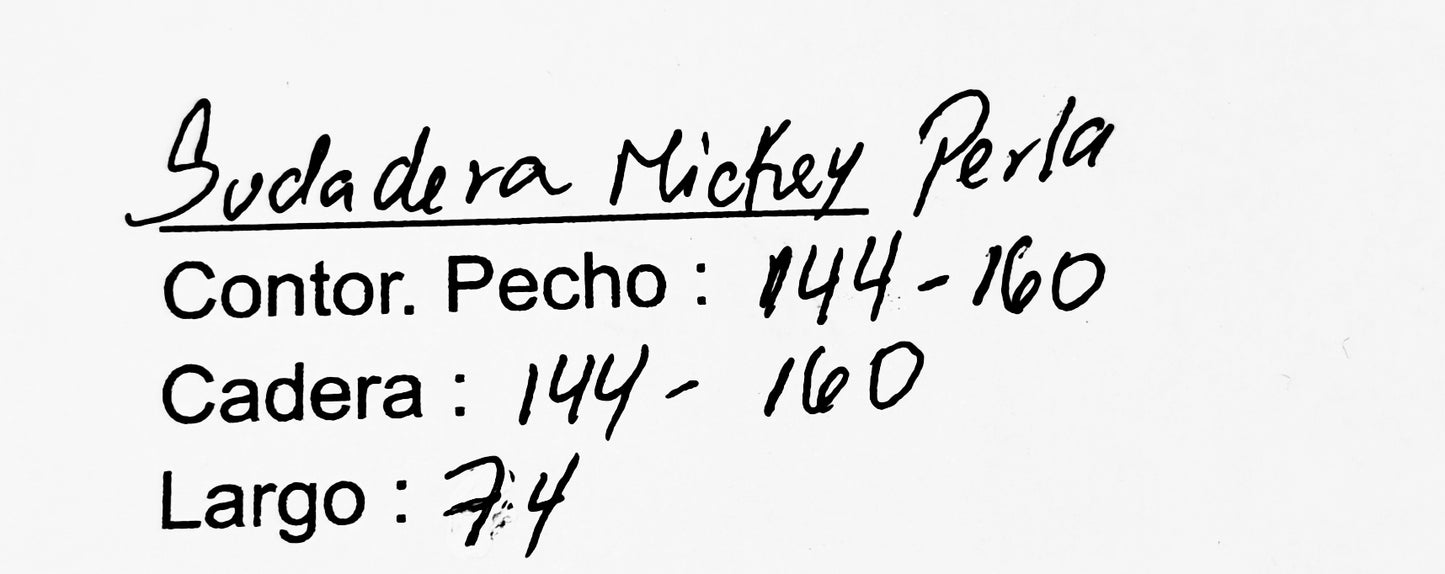 Sudadera Mickey Perla
Contor. Pecho : 144 - 160
Cadera : 144 - 160
Largo : 74